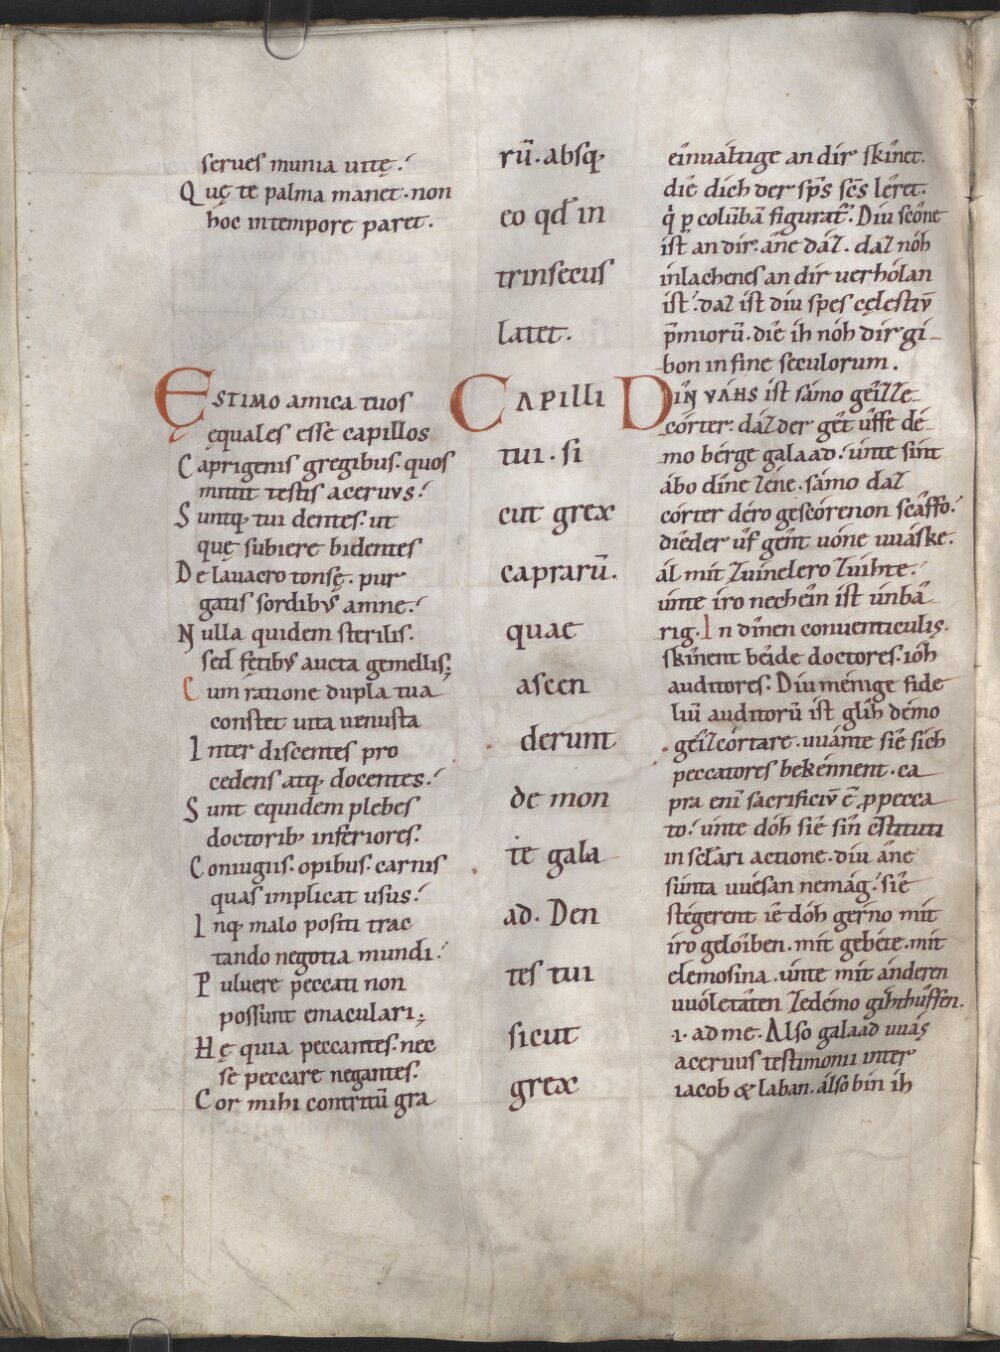 serues munia uitę.
Quę te palma manet. non
hoc in tempore paret.
Estimo amica tuos
ęquales esse capillos
Caprigenis gregibus. quos
mittit testis aceruus.
Suntq; tui dentes. ut
quę subiere bidentes
De lauacro tonsę. pur
gatis sordibus amne.
Nulla quidem sterilis.
sed fętibus aucta gemellis;
Cum ratione dupla tua
constet uita uenusta
Inter discentes pro
cedens atq; docentes.
Sunt equidem plebes
doctorib; inferiores.
Coniugiis. opibus. carnis
quas implicat usus.
Inq; malo positi trac
tando negotia mundi.
Puluere peccati non
possunt emaculari;
Hę quia peccantes. nec
se peccare negantes.
Cor mihi contritū gra
rū. absq;
eo qđ in
trinsecus
latet.
Capilli
tui. si
cut grex
caprarū.
quae
ascen
derunt
de mon
te gala
ad. Den
tes tui
sicut
grex
êinualtige an dir skînet.
dîe dich der sp̄s sc̄s lêret.
q̇ p̱ colūbā figurat̄. Diu scône
ist an dir. âne daz. daz nóh
inlachenes an dir uerhólan
ist. daz ist diu spes cęlestiū
p̄miorū. dîe ih nóh dir gi
bon in fine seculorum.
Dîn vâhs ist sámo gêizze
córter. daz der gêt ûffe dé
mo bérge galaad. únte sint
ábo dîne zéne. sámo daz
córter déro gescórenon scâffo.
dîeder ûf gênt uóne uuáske.
ál mit zuinelero zuihte.
únte íro nechêin ist únbâ
rig. In dînen conuenticulis.
skînent béide doctores. ióh
auditores. Diu ménige fide
liū auditorū ist glîh démo
gêizcórtare. uuánte sîe sich
peccatores bekénnent. ca
pra enī sacrificiū ē p̱ pecca
to. únte dóh sîe sîn cstituti
in sclari actione. diu âne
súnta uuésan nemág. sîe
stégerent îe dóh gérno mit
íro gelóiben. mit gebéte. mit
elemosina. únte mit ánderen
uuóletâten zedémo gihthûffen.
.i. ad me. Also galaad uuás
aceruus testimonii inter
iacob & laban. álso bin ih